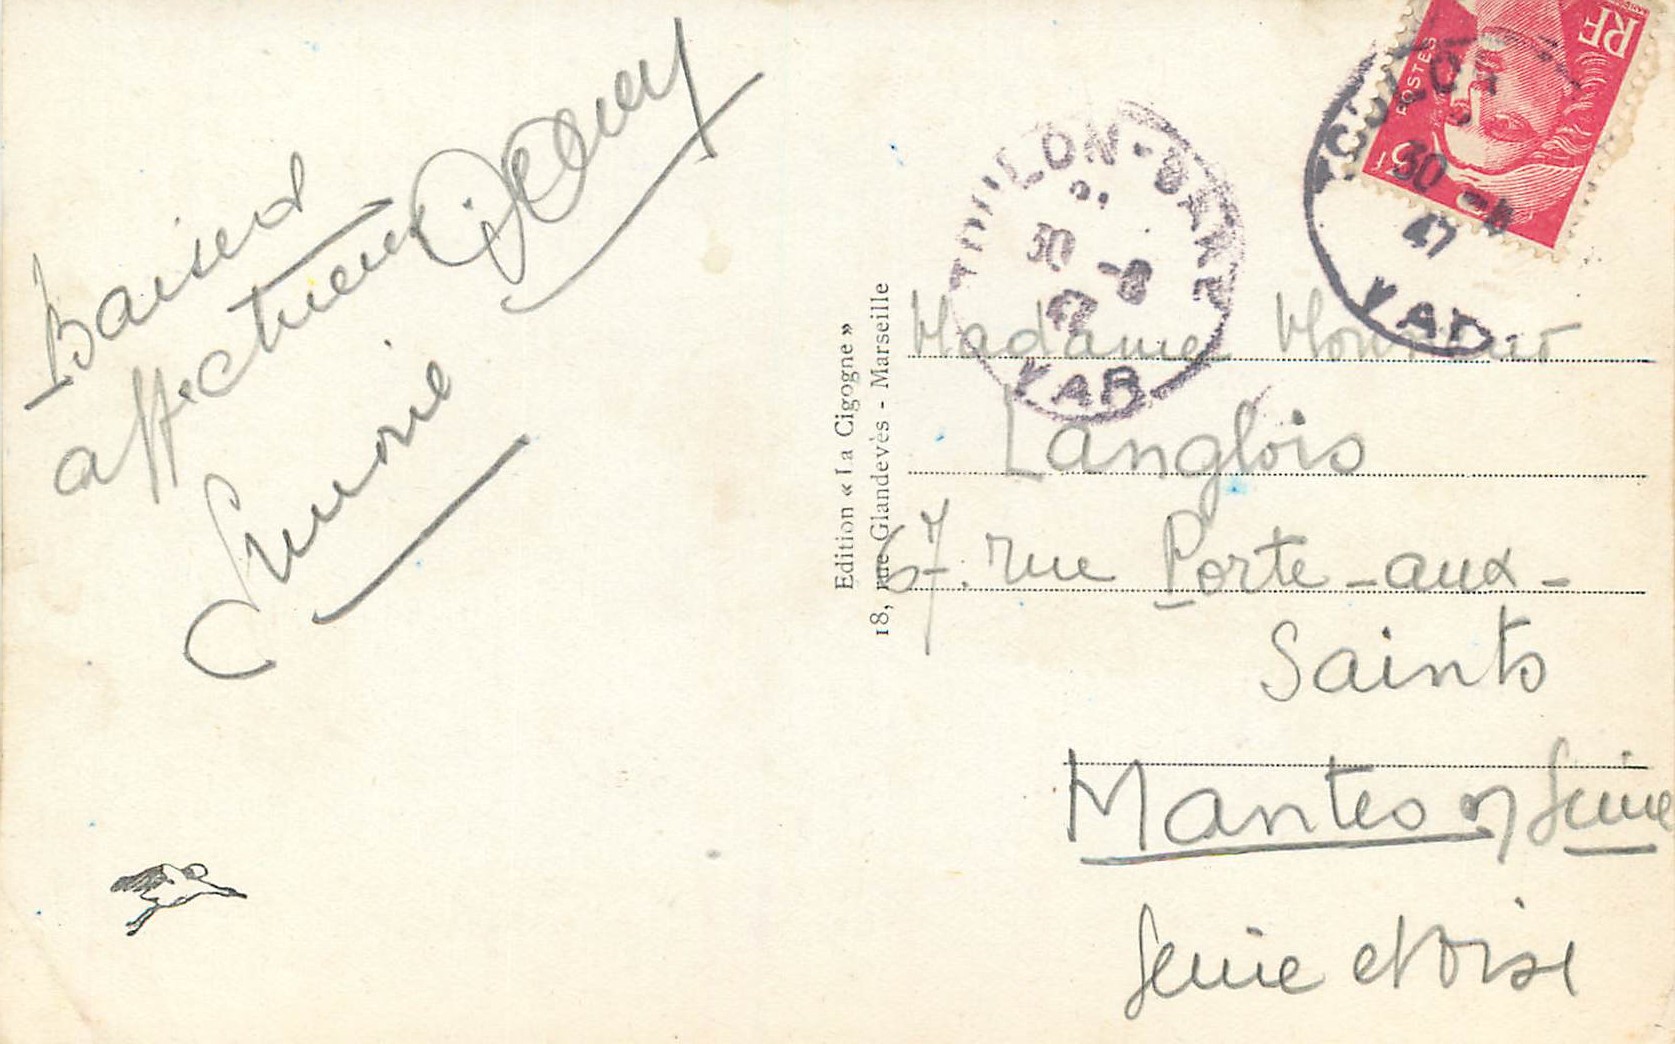 Baisers
affectueux
Simone
Edition « La Cigogne »
18, rue Glandevès - Marseille
TOULON-S/MER
30 -8
47
VAR
RF
POSTES
3f
TOULON
30 -8
47
VAR
Madame Monsieur
Langlois
67. rue Porte-aux-
Saints
Mantes s/ Seine
Seine et Oise